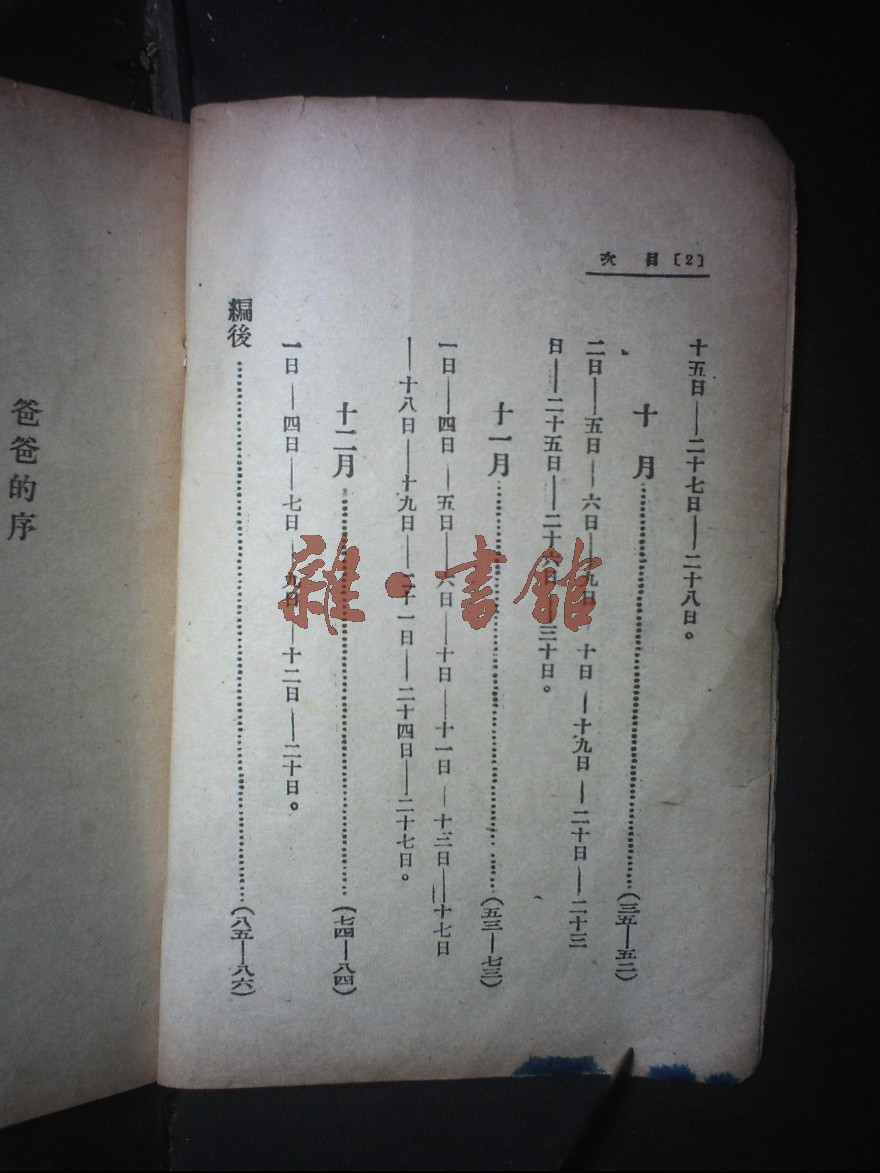 次 目 〔2〕
十五日——二十七日——二十八日。
十 月………………(三五—五二)
二日——五日——六日——九日——十日——十九日——二十日——二十三
日——二十五日——二十六日——三十日。
十一月………………(五三—七三)
一日——四日——五日——六日——十日——十一日——十三日——十七日
——十八日——十九日——二十一日——二十四日——二十七日。
十二月………………(七四—八四)
一日——四日——七日——九日——十二日——二十日。
編後………………(八五—八六)
爸爸的序
雜·書館